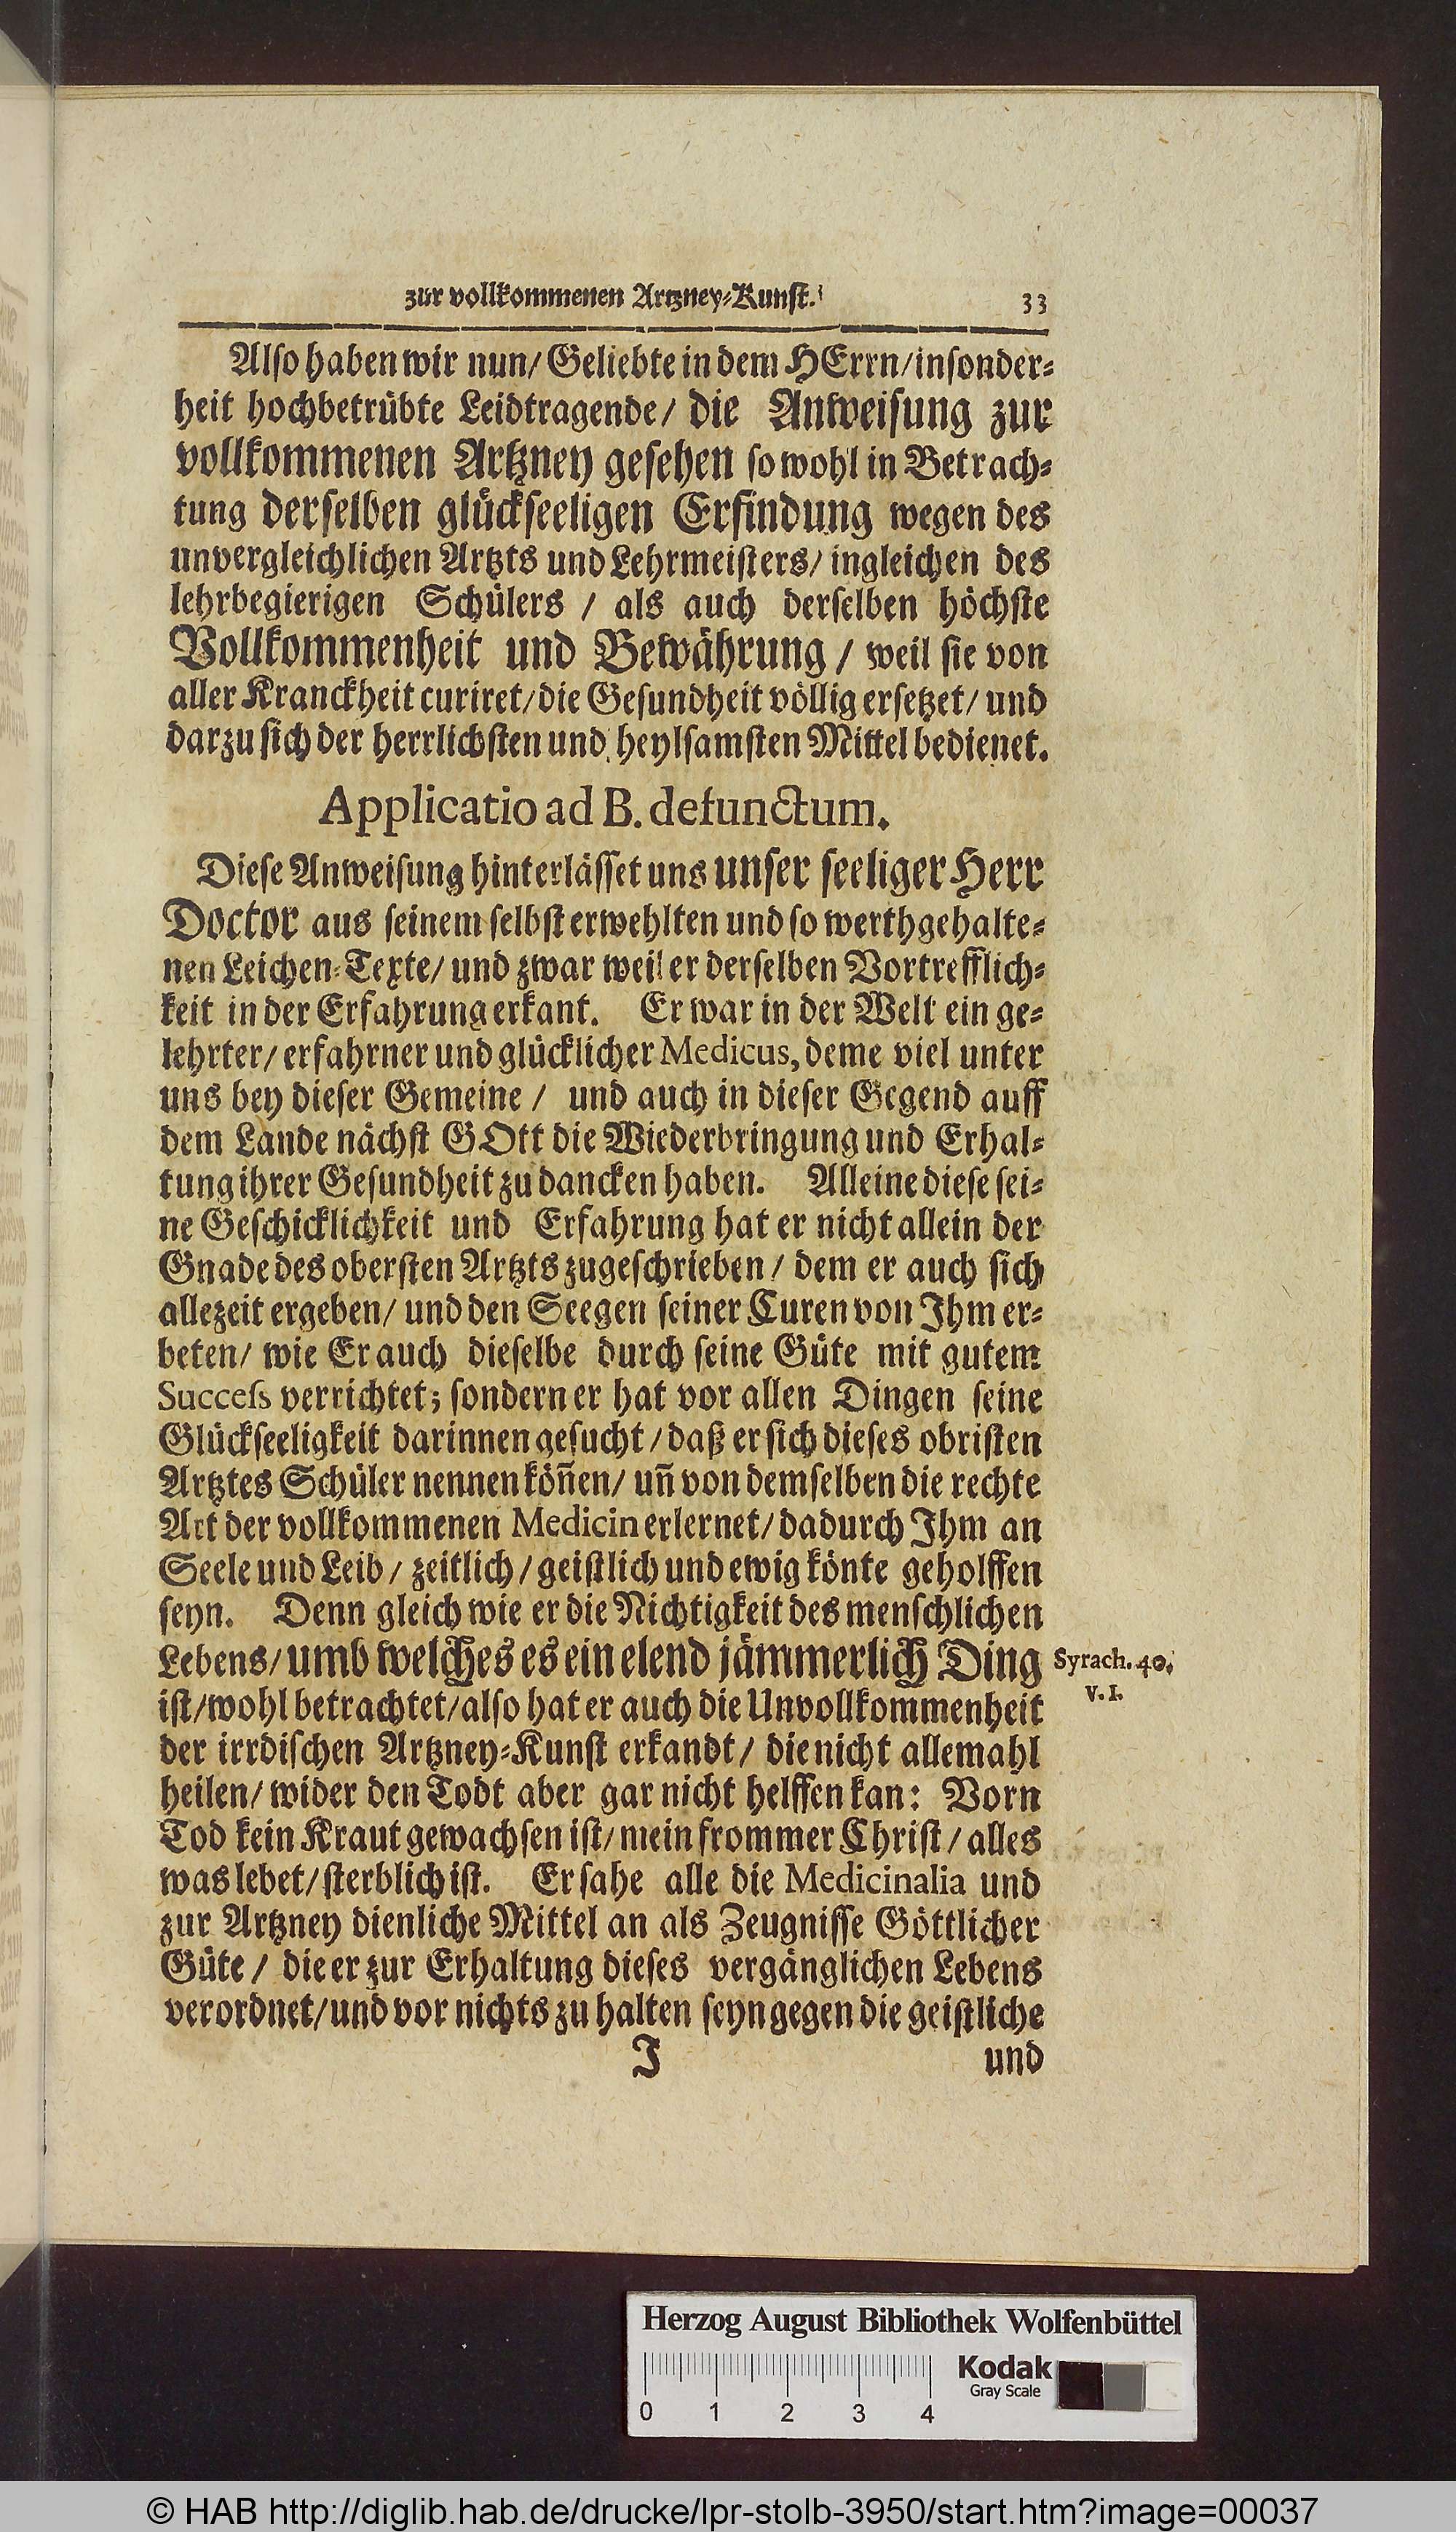 zur vollkommenen Artzney-Kunst. 33
Also haben wir nun/ Geliebte in dem HErrn/ insonder-
heit hochbetrübte Leidtragende/ die Anweisung zur
vollkommenen Artzney gesehen so wohl in Betrach-
tung derselben glückseeligen Erfindung wegen des
unvergleichlichen Artzts und Lehrmeisters/ ingleichen des
lehrbegierigen Schülers / als auch derselben höchste
Vollkommenheit und Bewährung / weil sie von
aller Kranckheit curiret/ die Gesundheit völlig ersetzet/ und
darzu sich der herrlichsten und heylsamsten Mittel bedienet.
Applicatio ad B. defunctum.
Diese Anweisung hinterlässet uns unser seeliger Herr
Doctor aus seinem selbst erwehlten und so werthgehalte-
nen Leichen-Texte/ und zwar weil er derselben Vortrefflich-
keit in der Erfahrung erkant. Er war in der Welt ein ge-
lehrter/ erfahrner und glücklicher Medicus, deme viel unter
uns bey dieser Gemeine / und auch in dieser Gegend auff
dem Lande nächst GOtt die Wiederbringung und Erhal-
tung ihrer Gesundheit zu dancken haben. Alleine diese sei-
ne Geschicklichkeit und Erfahrung hat er nicht allein der
Gnade des obersten Artzts zugeschrieben / dem er auch sich
allezeit ergeben/ und den Seegen seiner Curen von Ihm er-
beten/ wie Er auch dieselbe durch seine Güte mit gutem
Success verrichtet; sondern er hat vor allen Dingen seine
Glückseeligkeit darinnen gesucht / daß er sich dieses obristen
Artztes Schüler nennen koñen/ uñ von demselben die rechte
Art der vollkommenen Medicin erlernet/ dadurch Ihm an
Seele und Leib / zeitlich / geistlich und ewig könte geholffen
seyn. Denn gleich wie er die Nichtigkeit des menschlichen
Lebens/ umb welches es ein elend jämmerlich Ding
Syrach. 40.
v. 1.
ist/ wohl betrachtet/ also hat er auch die Unvollkommenheit
der irrdischen Artzney-Kunst erkandt / die nicht allemahl
heilen/ wider den Todt aber gar nicht helffen kan: Vorn
Tod kein Kraut gewachsen ist/ mein frommer Christ / alles
was lebet/ sterblich ist. Er sahe alle die Medicinalia und
zur Artzney dienliche Mittel an als Zeugnisse Göttlicher
Güte / die er zur Erhaltung dieses vergänglichen Lebens
verordnet/ und vor nichts zu halten seyn gegen die geistliche
J und
Herzog August Bibliothek Wolfenbüttel
Kodak
Gray Scale
0 1 2 3 4
© HAB http://diglib.hab.de/drucke/lpr-stolb-3950/start.htm?image=00037